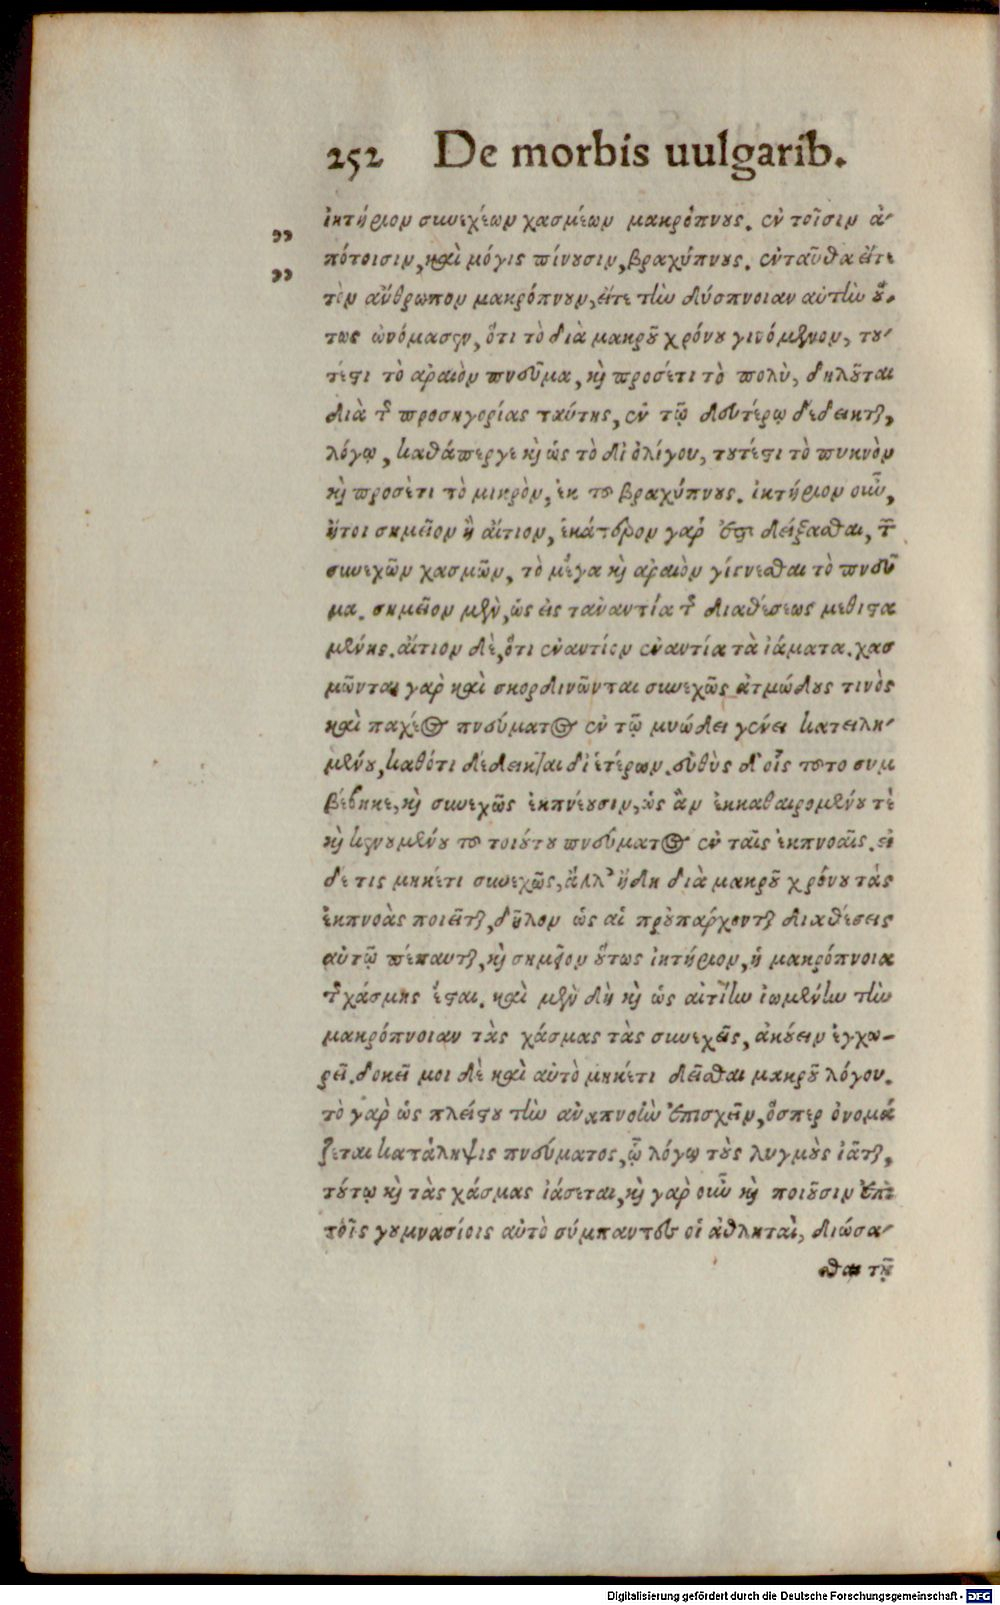 252 De morbis uulgarib.
ἰητήριον συνεχέων χασμέων μακρόπνους. ἐν τοῖσιν ἀ-
” πότοισιν, καὶ μόγις πίνουσιν, βραχύπνους. ἐνταῦθα εἴτε
” τὸν ἄνθρωπον μακρόπνουν, εἴτε τὴν δύσπνοιαν αὐτὴν οὕ-
τως ὠνόμασεν, ὅτι τὸ διὰ μακροῦ χρόνου γινόμενον, του-
τέστι τὸ ἀραιὸν πνεῦμα, καὶ προσέτι τὸ πολὺ, δηλοῦται
διὰ τῆς προσηγορίας ταύτης, ἐν τῷ δευτέρῳ δέδεικται,
λόγῳ, καθάπεργε καὶ ὡς τὸ δι’ ὀλίγου, τουτέστι τὸ πυκνὸν
καὶ προσέτι τὸ μικρὸν, ἐκ τοῦ βραχύπνους. ἰητήριον οὖν,
ἤτοι σημεῖον ἢ αἴτιον, ἑκάτερον γὰρ ἔστι δείξασθαι, τῶν
συνεχῶν χασμῶν, τὸ μέγα καὶ ἀραιὸν γίγνεσθαι τὸ πνεῦ
μα. σημεῖον μὲν, ὡς εἰς ταναντία τῆς διαθέσεως μεθιστα
μένης. αἴτιον δὲ, ὅτι ἐναντίων ἐναντία τὰ ἰάματα. χασ
μῶνται γὰρ καὶ σκορδινῶνται συνεχῶς ἀτμώδους τινὸς
καὶ παχέος πνεύματος ἐν τῷ μυώδει γένει κατειλη-
μένου, καθότι δέδεικται δι’ ἑτέρων. εὐθὺς δ’ οἷς τοῦτο συμ
βέβηκε, καὶ συνεχῶς ἐκπνέουσιν, ὡς ἂν ἐκκαθαιρομένου τὲ
καὶ κενουμένου τοῦ τοιούτου πνεύματος ἐν ταῖς ἐκπνοαῖς. εἰ
δε τις μηκέτι συνεχῶς, ἀλλ’ ἤδη διὰ μακροῦ χρόνου τὰς
ἐκπνοὰς ποιεῖται, δῆλον ὡς αἱ προϋπάρχουσαι διαθέσεις
αὐτῷ πέπαυται, καὶ σημεῖον οὕτως ἰητήριον, ἡ μακρόπνοια
τῆς χάσμης ἔσται. καὶ μὲν δὴ καὶ ὡς αἰτίαν ἰωμένην τὴν
μακρόπνοιαν τὰς χάσμας τὰς συνεχεῖς, ἀκούειν ἐγχω-
ρεῖ. δοκεῖ μοι δὲ καὶ αὐτὸ μηκέτι δεῖσθαι μακροῦ λόγου.
τὸ γὰρ ὡς πλείστου τὴν ἀναπνοὴν ἐπισχεῖν, ὅσπερ ὀνομά
ζεται κατάληψις πνεύματος, ᾧ λόγῳ τοὺς λυγμοὺς ἰᾶται,
τούτῳ καὶ τὰς χάσμας ἰάσεται, καὶ γὰρ οὖν καὶ ποιοῦσιν ἐπὶ
τοῖς γυμνασίοις αὐτὸ σύμπαντες οἱ ἀθληταὶ, διώσα-
σθαι τῇ
Digitalisierung gefördert durch die Deutsche Forschungsgemeinschaft - DFG